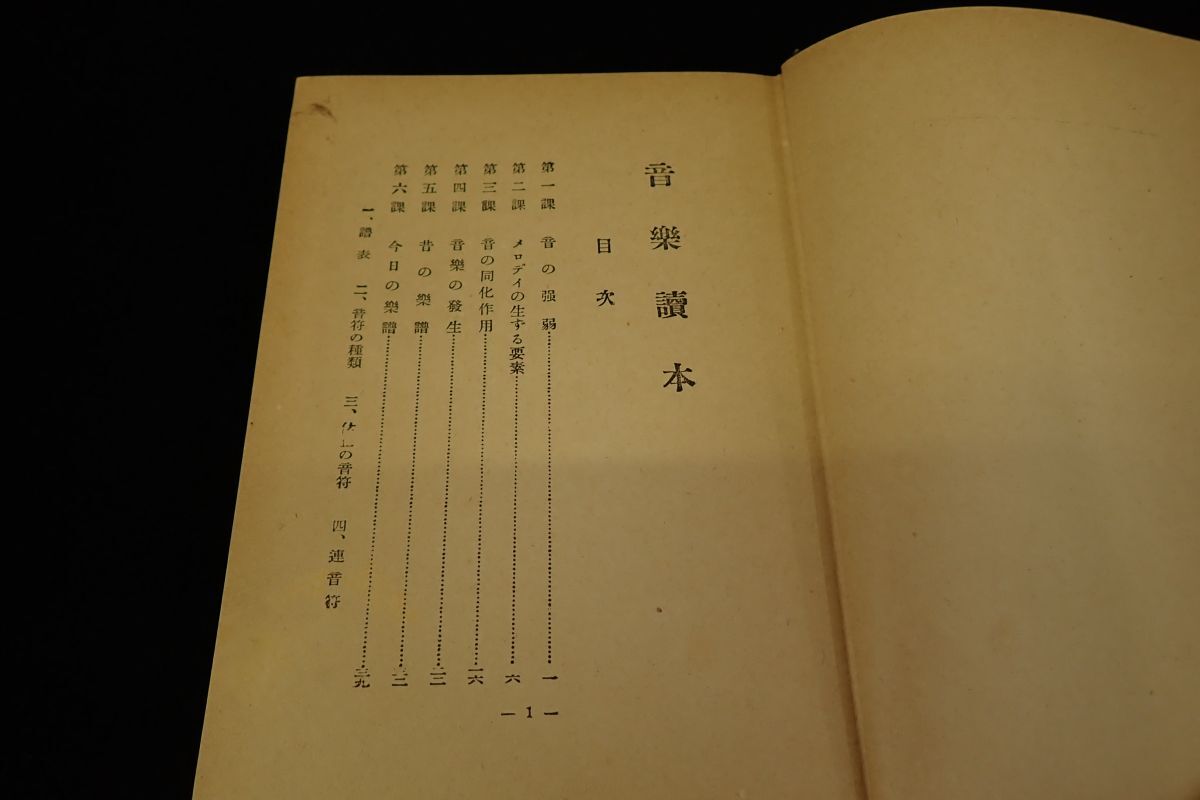 音樂讀本
目次
第一課 音の强弱……一
第二課 メロデイの生ずる要素……六
第三課 音の同化作用……一六
第四課 音樂の發生……二二
第五課 昔の樂譜……
第六課 今日の樂譜……三九
一、譜表 二、音符の種類 三、休止の音符 四、連音符
— 1 —